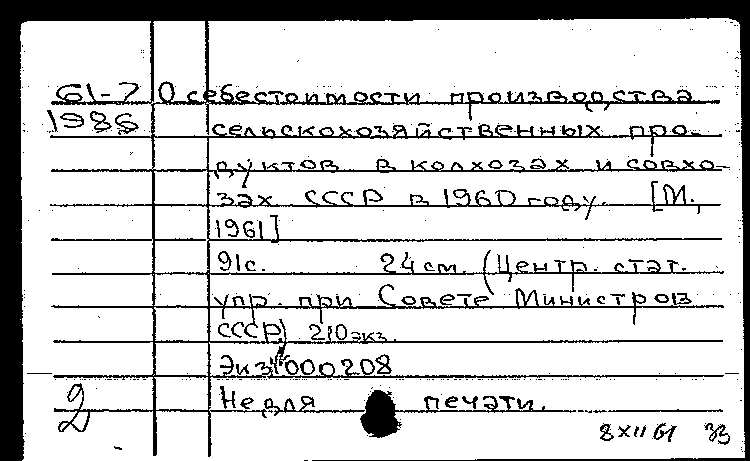 61-7 О себестоимости производства
1986 сельскохозяйственных про-
дуктов в колхозах и совхо-
зах СССР в 1960 году. [М.,
1961]
91с. 24см. (Центр. стат.
упр. при Совете Министров
СССР) 210экз.
Экз. №000208
2 Не для печати.
8 XII 61 33